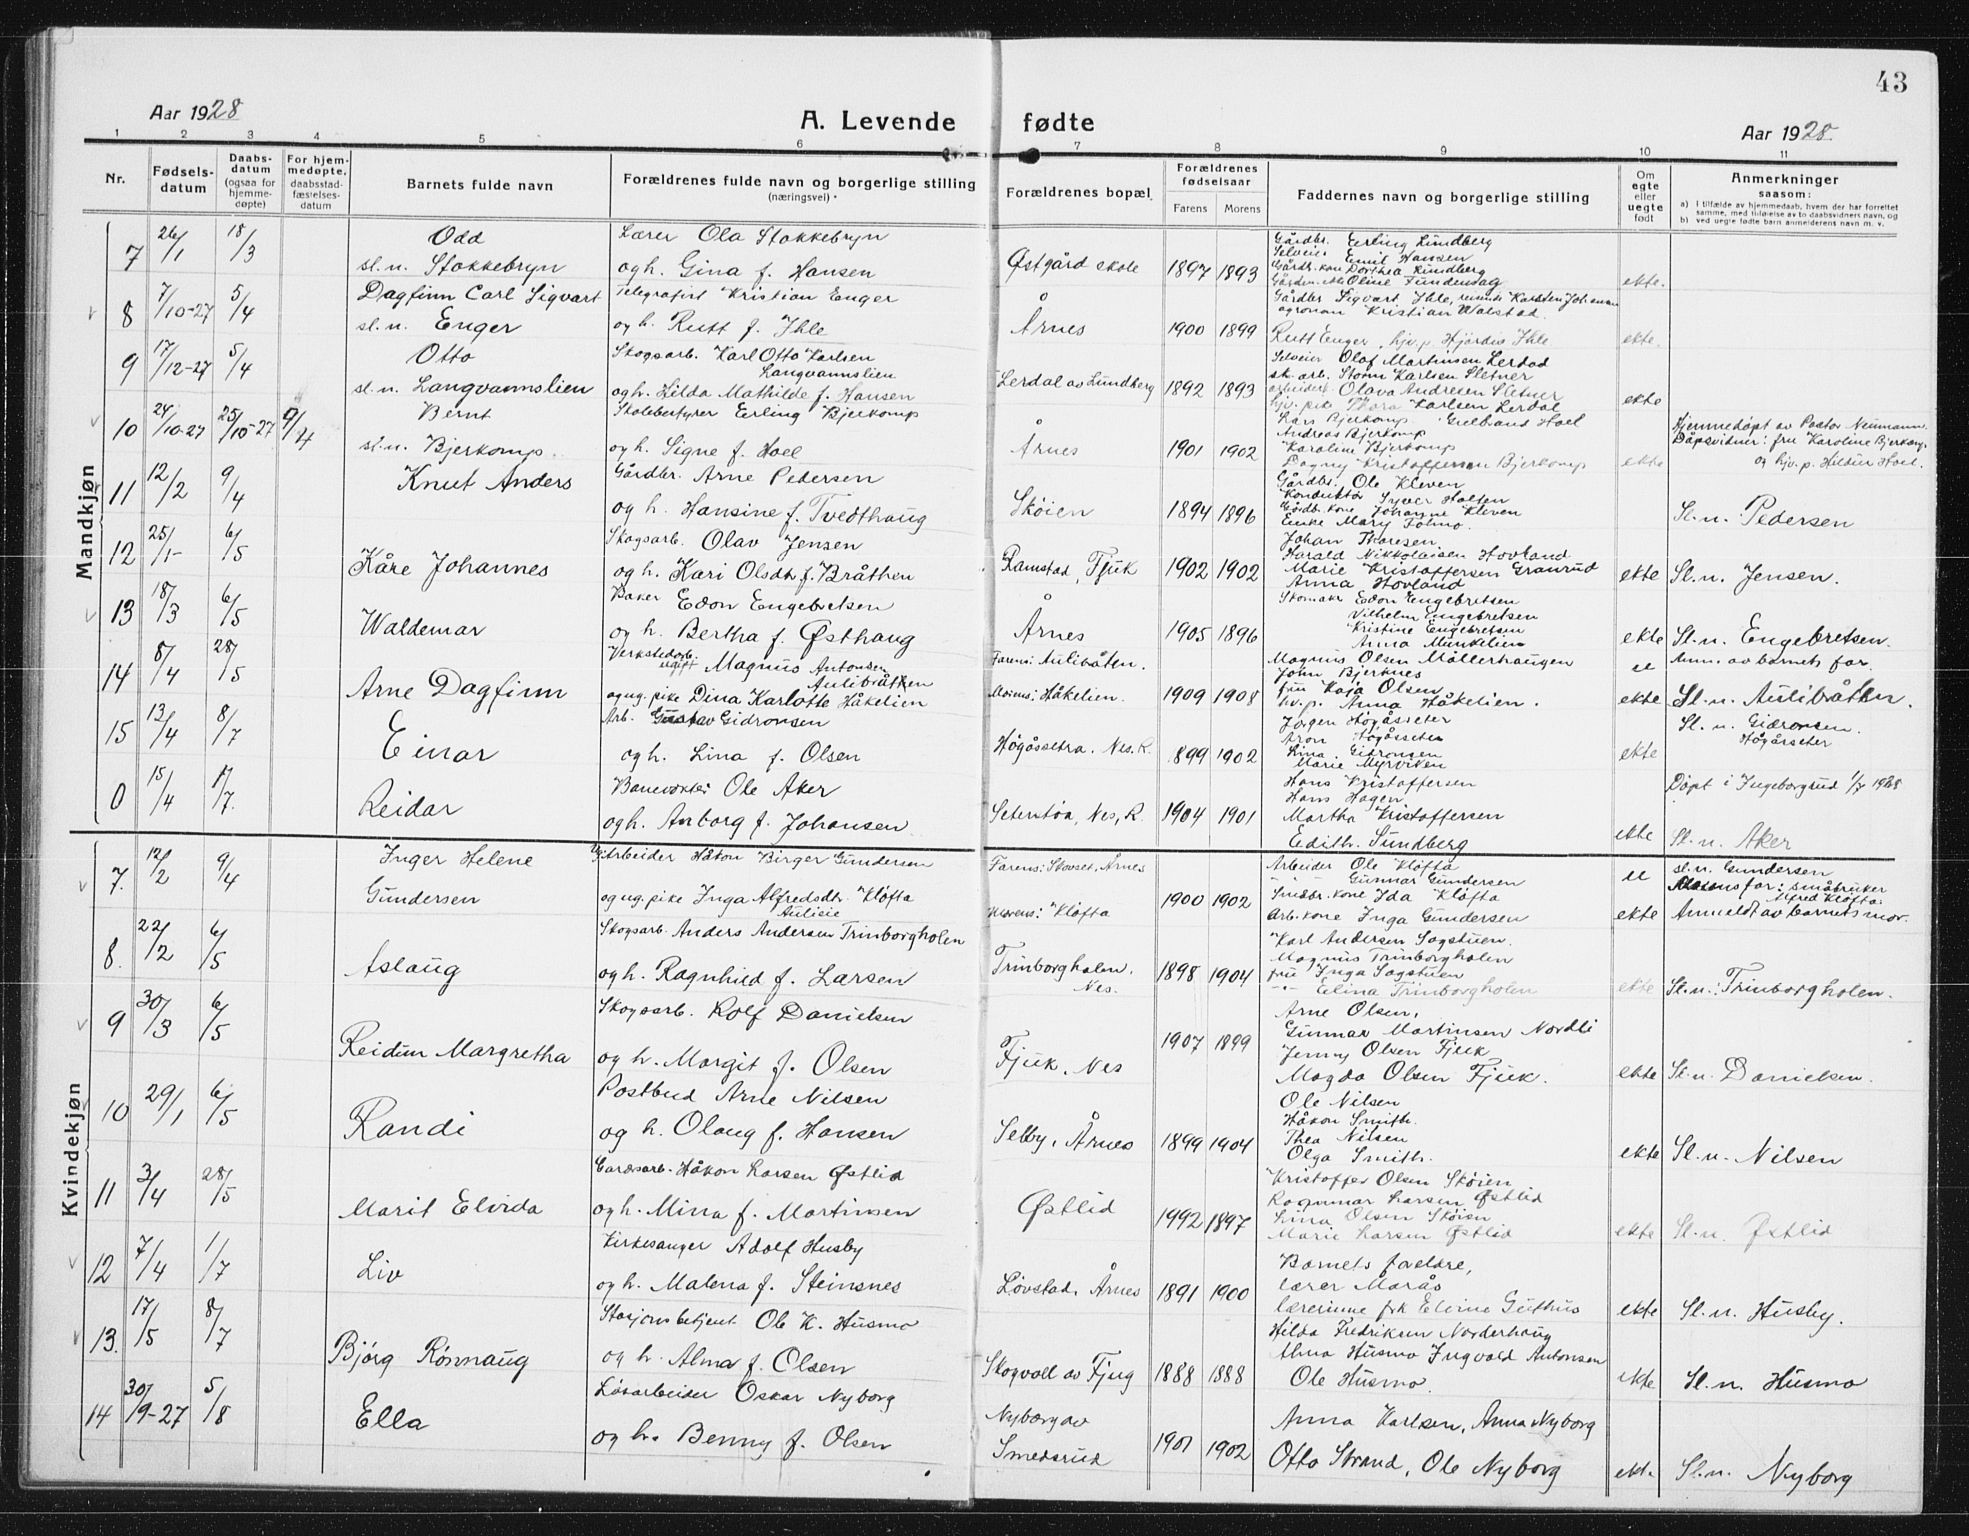 43
Aar 1928
A. Levende fødte
Aar 1928.
1 2 3 4 5 6 7 8 9 10 11
Nr.
Fødsels-
datum
Daabs-
datum
(ogsaa for
hjemme-
døpte)
For hjem-
medøpte.
daabsstad-
fæstelses-
datum
Barnets fulde navn
Forældrenes fulde navn og borgerlige stilling
(næringsvei)
Forældrenes bopæl
Forældrenes
fødselsaar
Farens Morens
Faddernes navn og borgerlige stilling
Om
egte
eller
uegte
født
Anmerkninger
saasom:
a) i tilfælde av hjemmedaab, hvem der har forrettet
samme, med tilføielse av to daabsvidners navn, og
b) ved uegte fødte barn anmelderens navn m. v.
Mandkjøn
7 26/1 18/3 Odd
sl.n. Stokkebryn
Lærer Ola Stokkebryn
og h. Gina f. Hansen
Østgård skole 1897 1893
Gårdbr. Erling Lundberg
Selveier Emil Hansen
Gårdbr. kone Dorthea Lundberg
Oline Fundensag
ekte.
8 7/10-27 5/4 Dagfinn Carl Sigvart
sl.n. Enger
Telegrafist Kristian Enger
og h. Rutt f. Ihle
Årnes 1900 1899
Gårdbr Sigvart Ihle, Karsten Johansen
agronom Kristian Walstad
Rutt Enger, hjv.p. Hjördis Ihle
ekte.
9 17/12-27 5/4 Otto
sl.n. Langvannslien
Skogsarb. Karl Otto Karlsen
Langvannslien
og h. Hilda Mathilde f. Hansen
Lerdal av Lundberg 1892 1893
Selveier Olaf Martinsen Lerdal
sk. arb. Storm Karlsen Sletner
Olava Andresen Sletner
hjv. pike Thora Karlsen Lerdal
ekte
10 24/10-27 25/10-27 9/4 Bernt
sl.n. Bjerkomp.
Skolebestyrer Erling Bjerkomp
og h. Signe f. Hoel
Årnes 1901 1902
Lars Bjerkomp Gulbrand Hoel
Andreas Bjerkomp
Karoline Bjerkomp
Dagny Kristoffersen Bjerkomp
ekte
Hjemmedöpt av Pastor Neumann.
Dåpsvidner: fru Karoline Bjerkomp
og hjv. p. Hildur Hoel.
11 12/2 9/4 Knut Anders
Gårdbr. Arne Pedersen
og h. Hansine f. Tvedthaug
Skòien 1894 1896
Gårdbr. Ole Kleven
Konduktör Syver Holten
Gårdb. kone Johanne Kleven
Enke Mary Tolmo.
Sl.n. Pedersen
12 25/1- 6/5 Kåre Johannes
Skogsarb. Olav Jensen
og h. Kari Olsdtr f. Bråthen
Ramstad, Fjuk 1902 1902
Johan Thoresen
Harald Nikkolaisen Hovland
Marie Kristoffersen Granrud
Anna Hovland
ekte Sl.n. Jensen.
13 18/3 6/5 Waldemar
Baker Edon Engebretsen
og h. Bertha f. Østhaug
Årnes 1905 1896
Skomakr Edon Engebretsen
Vilhelm Engebretsen
Kristine Engebretsen
Anna Munkelien
ekte Sl.n. Engebretsen.
14 8/4 28/5 Arne Dagfinn
Verkstedarb.
ugift Magnus Antonsen
Aulibråthen
og ug. pike Dina Karlotte Håkelien
Farens: Aulibråten.
Morens: Håkelien. 1909 1908
Magnus Olsen Möllerhaugen
John Bjerknes
fru Kaja Olsen
hv.p. Anna Håkelien.
u
ekte
Anm. av barnets far.
Sl.n. Aulibråthen.
15 13/4 8/7 Einar
Arb. Gustav Gidronsen
og h. Lina f. Olsen
Högåssetra. Nes. R. 899 1902
Jörgen Högåsseter
Aron Högåsseter
Lina Gidronsen
Marie Myrviken
ekte
Sl.n. Gidronsen.
Högåsseter
0 15/4 1/7. Reidar
Banevokter Ole Aker
og h. Anborg f. Johansen
Seterstöa, Nes, R. 1904 1901
Hans Kristoffersen
Hans Hagen
Martha Kristoffersen
Edith. Sundberg
ekte
Döpt i Ingeborgrud 1/7 1928
Sl.n. Aker
Kvindekjøn
7. 12/2 9/4 Inger Helene
Gundersen
Arbeider Håkon Birger Gundersen
og ug. pike Inga Alfredsdtr. Kløfta
Aulisie
Farens: Skovset, Årnes
Morens: Kløfta 1900 1902
Arbeider Ole Kløfta
Gunnar Gundersen
Småbr. kone Ida Kløfta
Arb. kone Inga Gundersen
u
ekte
sl.n. Gundersen
Morens far: småbruker
Alfred Kløfta.
Anmeldt av barnets mor.
8. 22/2 6/5 Aslaug
Skogsarb. Anders Andersen Trinborgholen
og h. Ragnhild f. Larsen
Trinborgholen,
Nes. 1898 1904
Karl Andersen Sagstuen.
Magnus Trinborgholen
fru Inga Sagstuen
-"- Elina Trinborgholen
ekte Sl.n.: Trinborgholen.
9 30/3 6/5 Reidun Margretha
Skogsarb. Rolf Danielsen
og h. Margit f. Olsen
Fjuk. Nes 1907 1899
Arne Olsen,
Gunnar Martinsen Nordli
Jenny Olsen Fjuk
Magda Olsen Fjuk.
ekte Sl.n. Danielsen.
10 29/1 6/5 Randi
Postbud Arne Nilsen
og h. Olaug f. Hansen
Selby, Årnes 1899 1904
Ole Nilsen
Håkon Smith.
Thea Nilsen
Olga Smith.
ekte Sl.n. Nilsen
11 3/4 28/5 Marit Elvida
Gardsarb. Håkon Larsen Østlid
og h. Mina f. Martinsen
Østlid 1992 1897
Kristoffer Olsen Sköien
Ragnmar Larsen Østlid
Lina Olsen Sköien
Marie Larsen Østlid
ekte Sl.n. Østlid
12 7/4 1/7 Liv
Kirkesanger Adolf Husby
og h. Malena f. Steinsnes
Lövstad, Årnes 1891 1900
Barnets foreldre,
lærer Marås
lærerinne frk Elvine Guthus
ekte Sl.n. Husby.
13. 17/5 8/7 Bjørg Rönnaug
Stasjonsbetjent Ole K. Husmo
og h. Alma f. Olsen
Skogvoll av Fjug 1888 1888
Hilda Fredriksen Norderhaug
Alma Husmo Ingvald Antonsen
Ole Husmo.
ekte Sl.n. Husmo
14 30/9-27 5/8 Ella
Lösarbeider Oskar Nyborg
og h. Benny f. Olsen
Nyborg av
Smedsrud 1901 1902
Anna Karlsen, Anna Nyborg
Otto Strand, Ole Nyborg
ekte Sl.n. Nyborg